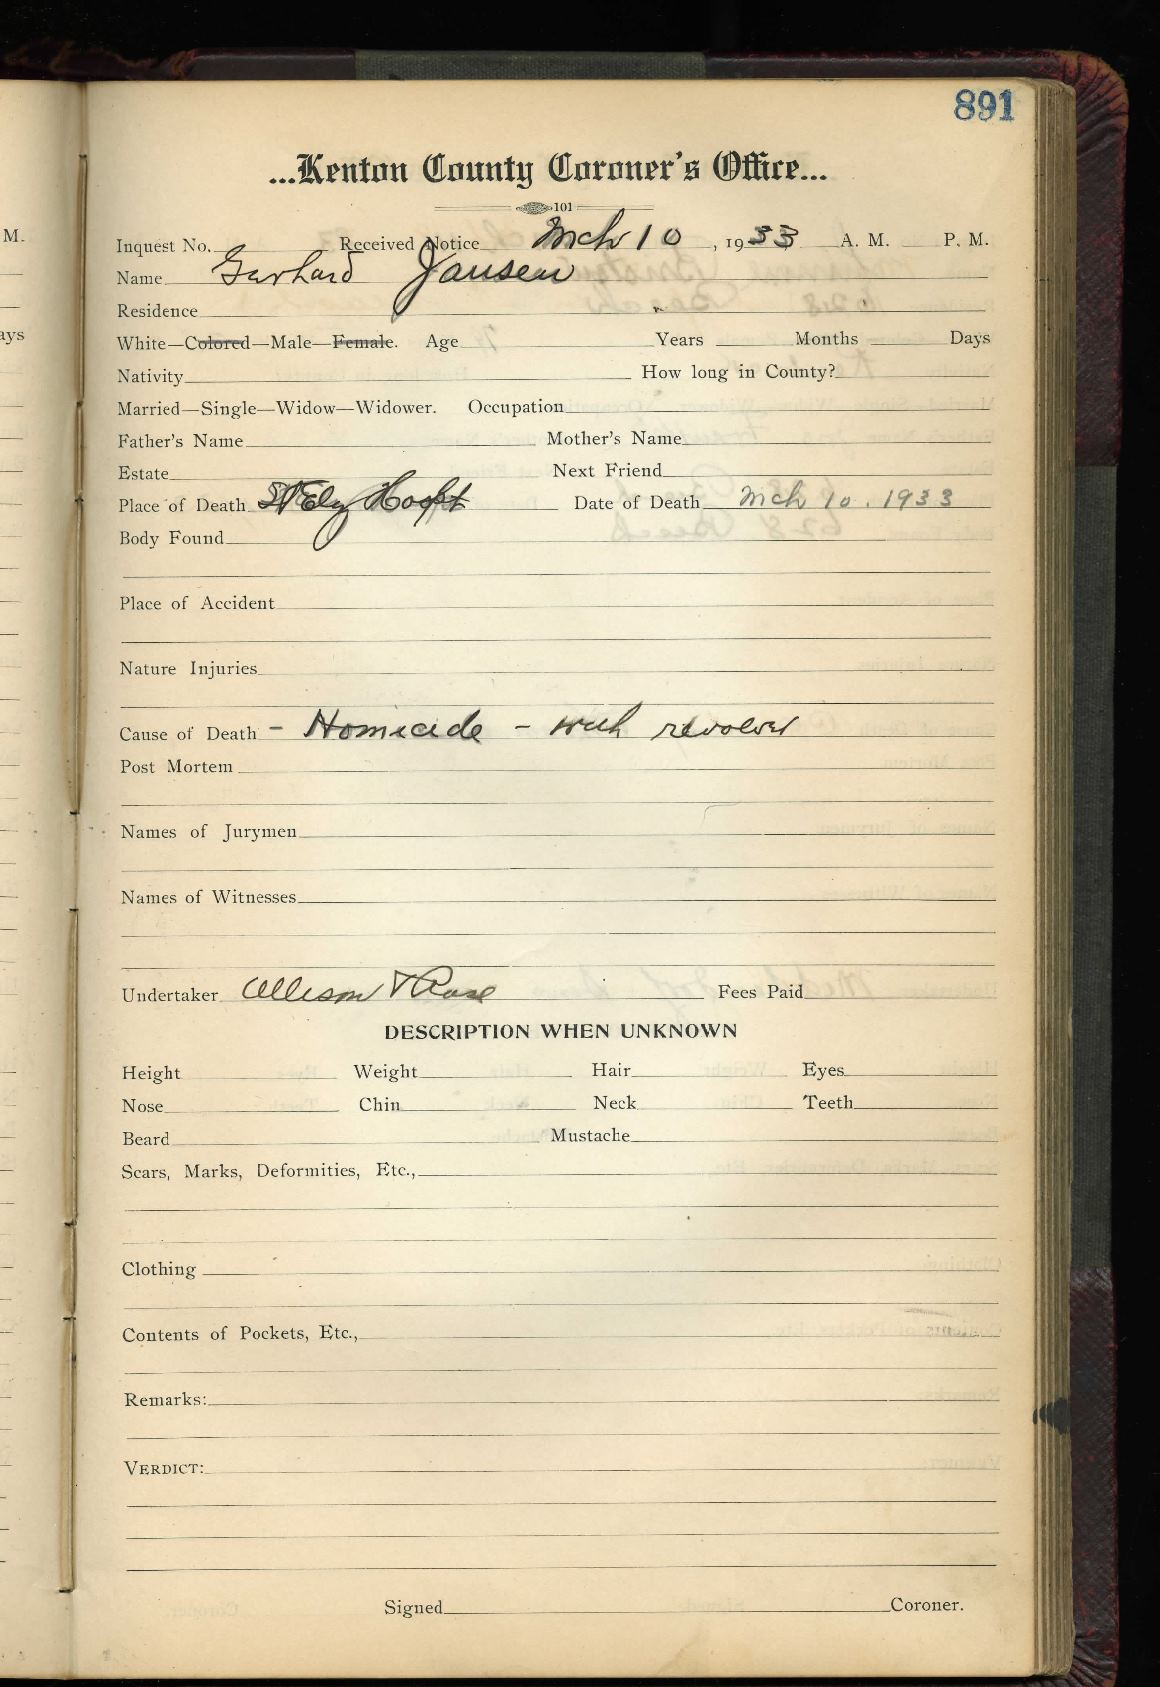 891
...Kenton County Coroner's Office...
101
M.
Inquest No. Received Notice Mch 10, 1933 A. M. P. M.
Name Gerhard Jansen
Residence
ays
White—Colored—Male—Female. Age Years Months Days
Nativity How long in County?
Married—Single—Widow—Widower. Occupation
Father's Name Mother's Name
Estate Next Friend
Place of Death St Elz Hospt Date of Death Mch 10. 1933
Body Found
Place of Accident
Nature Injuries
Cause of Death - Homicide - with revolver
Post Mortem
Names of Jurymen
Names of Witnesses
Undertaker Allison & Rose Fees Paid
DESCRIPTION WHEN UNKNOWN
Height Weight Hair Eyes
Nose Chin Neck Teeth
Beard Mustache
Scars, Marks, Deformities, Etc.,
Clothing
Contents of Pockets, Etc.,
Remarks:
VERDICT:
Signed Coroner.